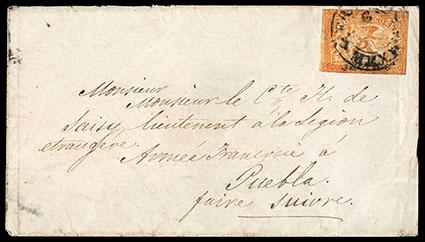 Monsieur
Monsieur le Cte H. de
Saisy, lieutenant à la Légion
étrangère. Armée Française à
Puebla.
faire suivre.